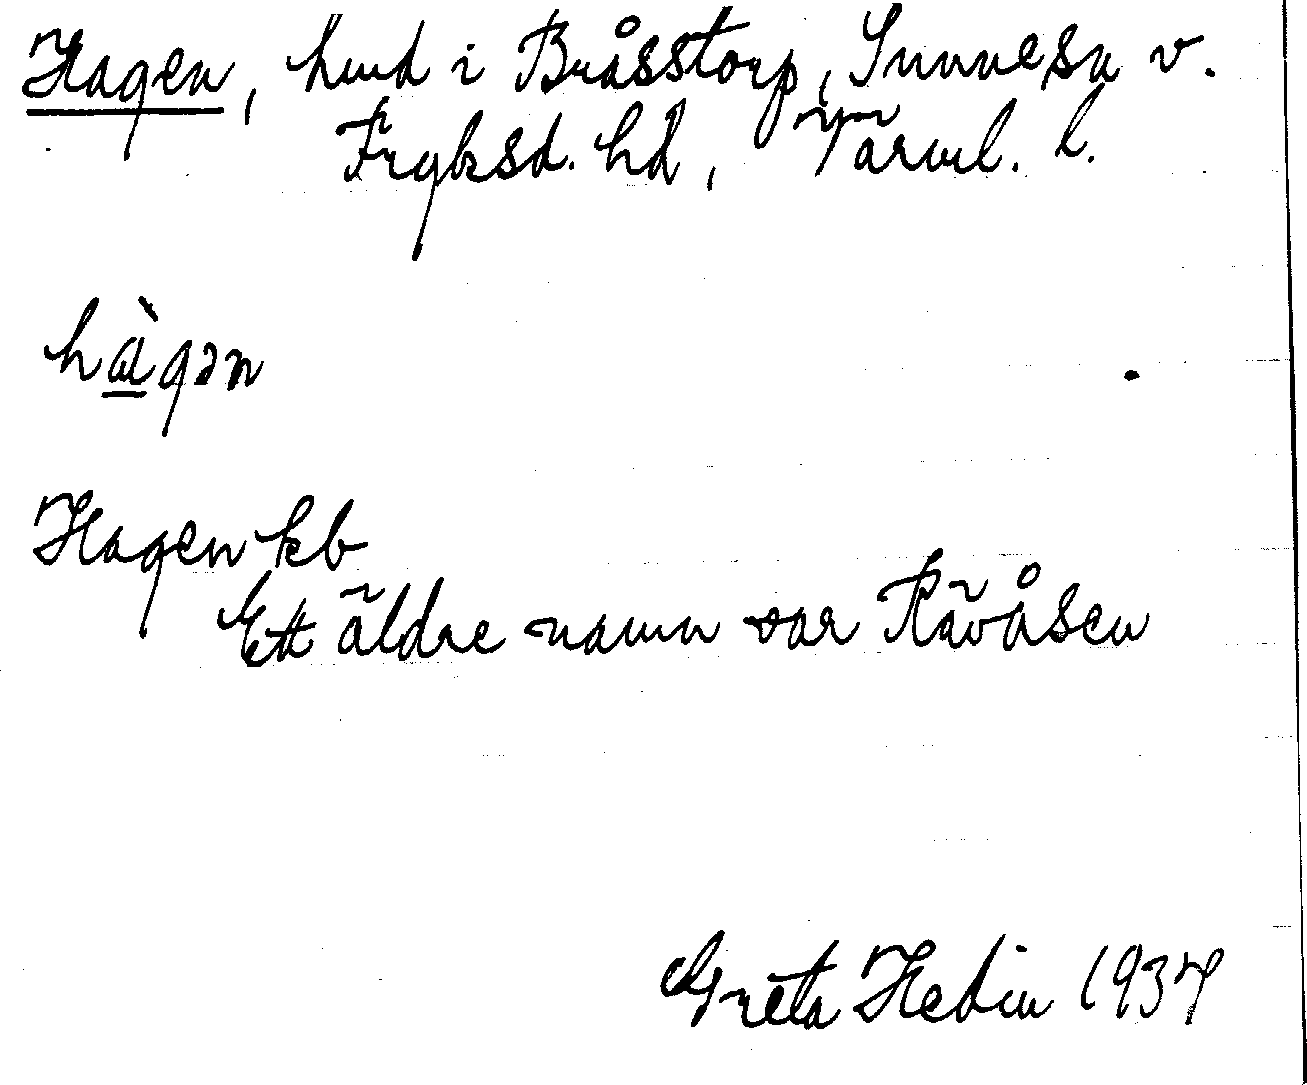 Hagen, hmd i Bråsstorp, Sunnesn v.
Fryksd. hd, Värml. l.
hàgən
Hagen kb
Ett äldre namn var Rävåsen
Greta Hedin 1937